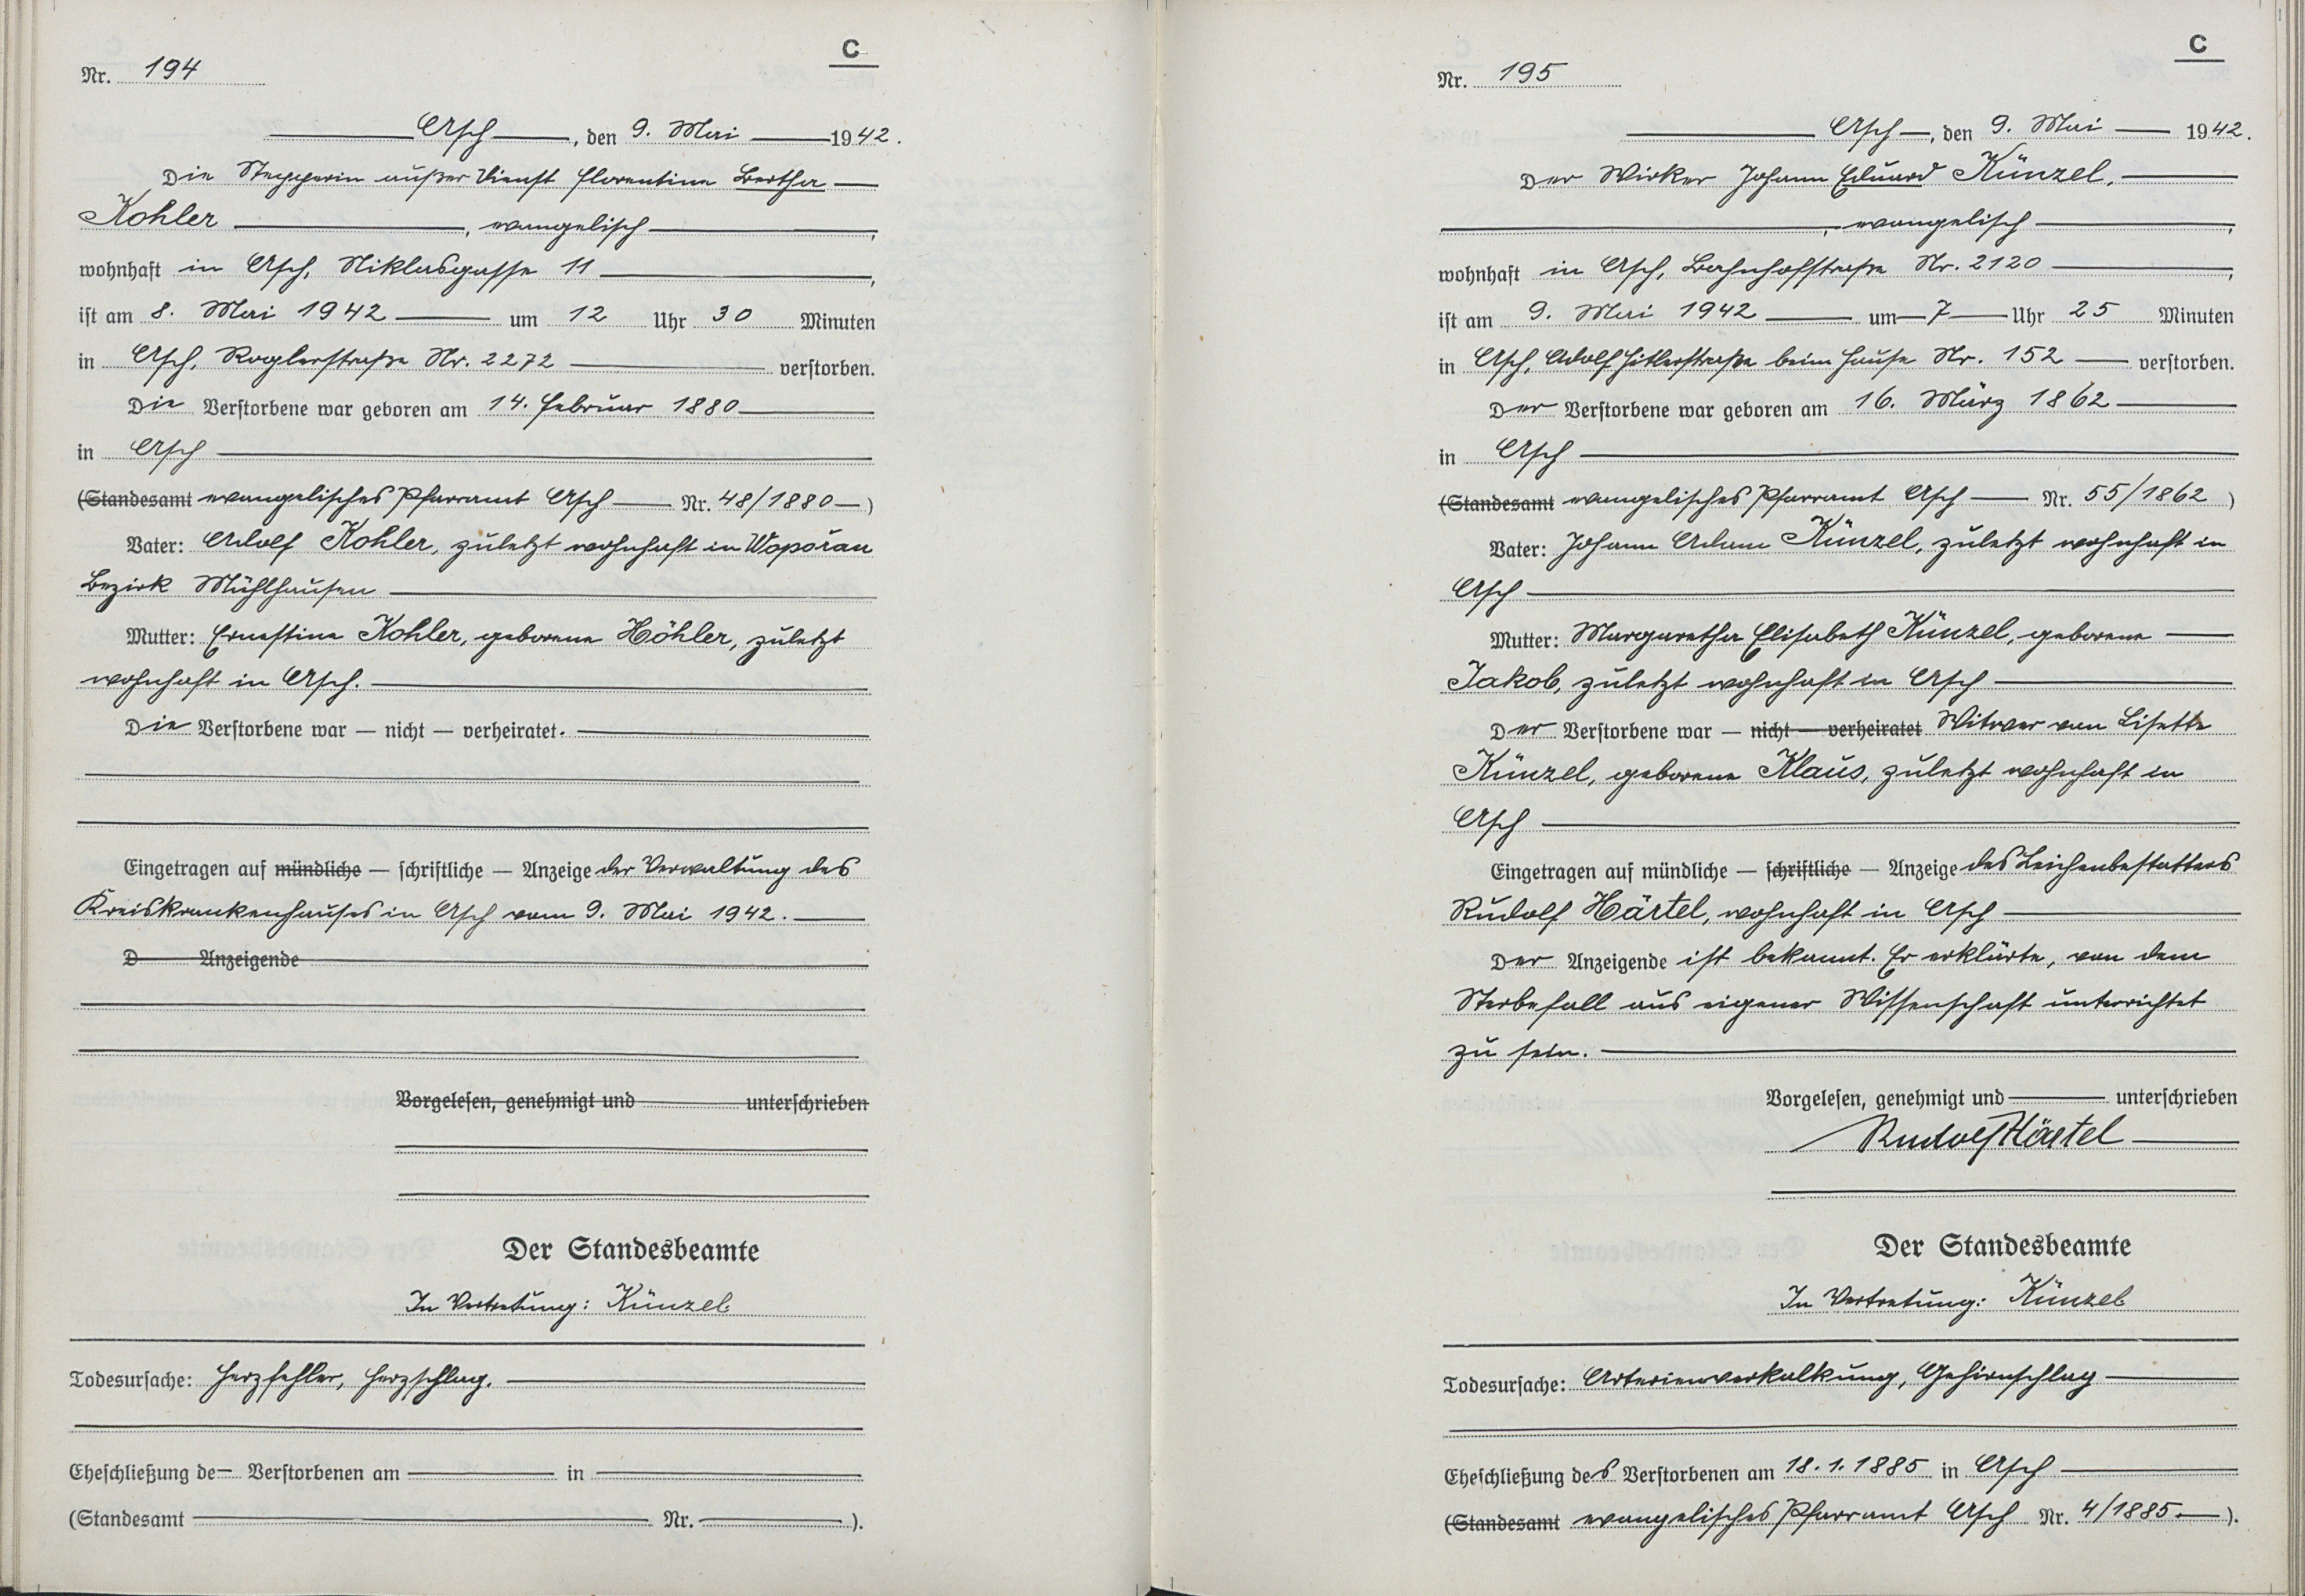 C
Nr. 194
Asch, den 9. Mai 1942.
Die Stepperin außer Dienst Florentine Bertha
Kohler, evangelisch,
wohnhaft in Asch, Niklasgasse 11,
ist am 8. Mai 1942 um 12 Uhr 30 Minuten
in Asch, Roglerstraße Nr. 2272 verstorben.
Die Verstorbene war geboren am 14. Februar 1880
in Asch
(Standesamt evangelisches Pfarramt Asch Nr. 48/1880)
Vater: Adolf Kohler, zuletzt wohnhaft in Wopořan
Bezirk Mühlhausen
Mutter: Ernestine Kohler, geborene Höhler, zuletzt
wohnhaft in Asch.
Die Verstorbene war — nicht — verheiratet.
Eingetragen auf mündliche — schriftliche — Anzeige der Verwaltung des
Kreiskrankenhauses in Asch vom 9. Mai 1942.
D Anzeigende
Vorgelesen, genehmigt und unterschrieben
Der Standesbeamte
In Vertretung: Künzel
Todesursache: Herzfehler, Herzschlag.
Eheschließung de Verstorbenen am in
(Standesamt Nr. ).
C
Nr. 195
Asch, den 9. Mai 1942.
Der Wirker Johann Eduard Künzel,
, evangelisch,
wohnhaft in Asch, Bahnhofstraße Nr. 2120,
ist am 9. Mai 1942 um 7 Uhr 25 Minuten
in Asch, Adolf Hitlerstraße beim Hause Nr. 152 verstorben.
Der Verstorbene war geboren am 16. März 1862
in Asch
(Standesamt evangelisches Pfarramt Asch Nr. 55/1862)
Vater: Johann Adam Künzel, zuletzt wohnhaft in
Asch
Mutter: Margaretha Elisabeth Künzel, geborene
Jakob, zuletzt wohnhaft in Asch
Der Verstorbene war — nicht — verheiratet Witwer von Lisette
Künzel, geborene Klaus, zuletzt wohnhaft in
Asch
Eingetragen auf mündliche — schriftliche — Anzeige des Leichenbestatters
Rudolf Härtel, wohnhaft in Asch
Der Anzeigende ist bekannt. Er erklärte, von dem
Sterbefall aus eigener Wissenschaft unterrichtet
zu sein.
Vorgelesen, genehmigt und unterschrieben
Rudolf Härtel
Der Standesbeamte
In Vertretung: Künzel
Todesursache: Arterienverkalkung, Gehirnschlag
Eheschließung des Verstorbenen am 18.1.1885 in Asch
(Standesamt evangelisches Pfarramt Asch Nr. 4/1885.).